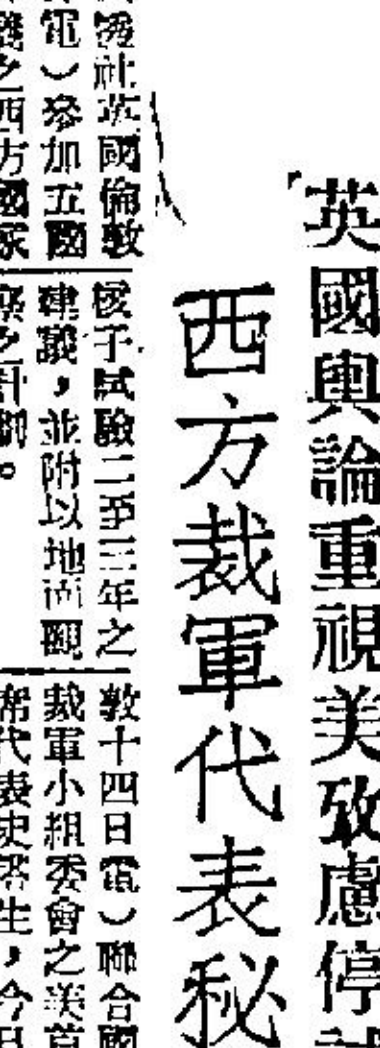 英國輿論重視美攷慮停試
西方裁軍代表秘
透社英國倫敦
電）參加五國
之西方國家
核子試驗二至三年之
建議，並附以地面觀
察之計劃。
敦十四日電）聯合國
裁軍小組委會之美首
席代表史塔生，今日